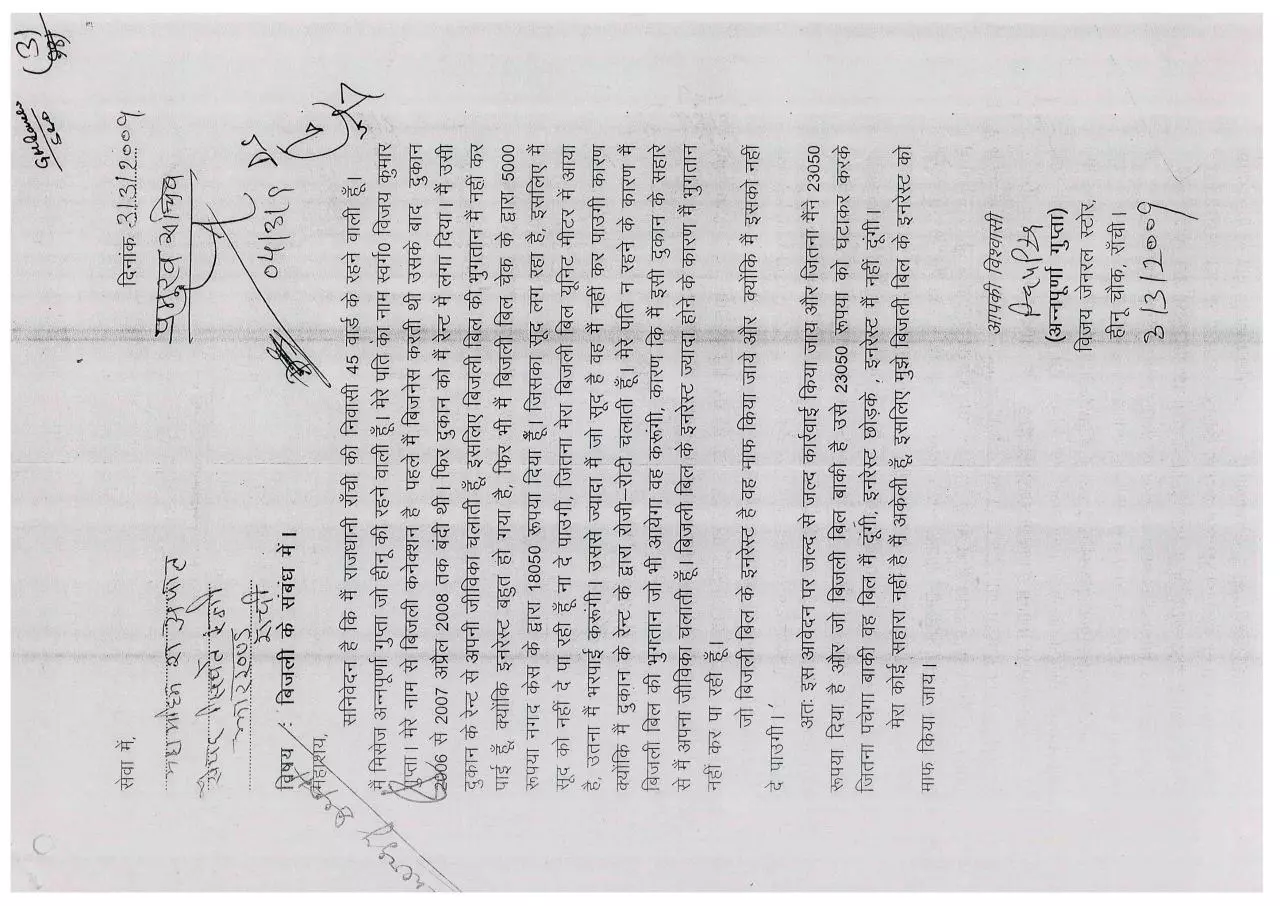 सेवा में,
दिनांक 3/3/2009
महामहिम श्री
सैयद सिब्ते रजी
झारखण्ड
राँची
प्रधान सचिव
04/3/9
विषय : बिजली के संबंध में।
महाशय,
Energy Dept
सनिवेदन है कि मैं राजधानी राँची की निवासी 45 वार्ड के रहने वाली हूँ।
मैं मिसेज अन्नपुर्णा गुप्ता जो हीनू की रहने वाली हूँ। मेरे पति का नाम स्वर्ग0 विजय कुमार
गुप्ता। मेरे नाम से बिजली कनेक्शन है पहले मैं बिजनेस करती थी उसके बाद दुकान
2006 से 2007 अप्रेल 2008 तक बंदी थी। फिर दुकान को मैं रेन्ट में लगा दिया मैं उसी
दुकान के रेन्ट से अपनी जीविका चलाती हूँ इसलिए बिजली बिल की भुगतान मैं नहीं कर
पाई हूँ क्योंकि इनरेस्ट बहुत हो गया है, फिर भी मैं बिजली बिल चेक के द्वारा 5000
रूपया नगद केस के द्वारा 18050 रूपया दिया हूँ। जिसका सूद लग रहा है, इसलिए मैं
सूद को नहीं दे पा रही हूँ ना दे पाउंगी, जितना मेरा बिजली बिल यूनिट मीटर में आया
है, उतना मैं भरपाई करूंगी। उससे ज्यादा में जो सूद है वह मैं नहीं कर पाउंगी कारण
क्योंकि मैं दुकान के रेन्ट के द्वारा रोजी-रोटी चलाती हूँ। मेरे पति न रहने के कारण मैं
बिजली बिल की भुगतान जो भी आयेगा वह करूंगी, कारण कि मैं इसी दुकान के सहारे
से मैं अपना जीविका चलाती हूँ। बिजली बिल के इनरेस्ट ज्यादा होने के कारण मैं भुगतान
नहीं कर पा रही हूँ।
जो बिजली बिल के इनरेस्ट है वह माफ किया जाये और क्योंकि मैं इसको नहीं
दे पाउंगी।
अतः इस आवेदन पर जल्द से जल्द कारवाई किया जाये और जितना मैंने 23050
रूपया दिया है और जो बिजली बिल बाकी है उसे 23050 रूपया को घटाकर करके
जितना पचेगा बाकी वह बिल मैं दूंगी, इनरेस्ट छोड़के, इनरेस्ट मैं नहीं दूंगी।
मेरा कोई सहारा नहीं है मैं अकेली हूँ, इसलिए मुझे बिजली बिल के इनरेस्ट को
माफ किया जाय।
आपकी विश्वासी
(अन्नपुर्णा गुप्ता)
विजय जेनरल स्टोर,
हीनू चौक, राँची।
3/3/2009